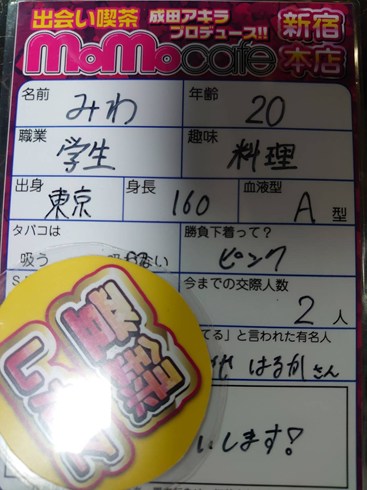 出会い喫茶 成田アキラ プロデュース!! 新宿本店
MoMocafe
名前 みわ 年齢 20
職業 学生 趣味 料理
出身 東京 身長 160 血液型 A 型
タバコは 勝負下着って?
吸う 吸わない ピンク
今までの交際人数
2 人
てる」と言われた有名人
はるかさん
します!